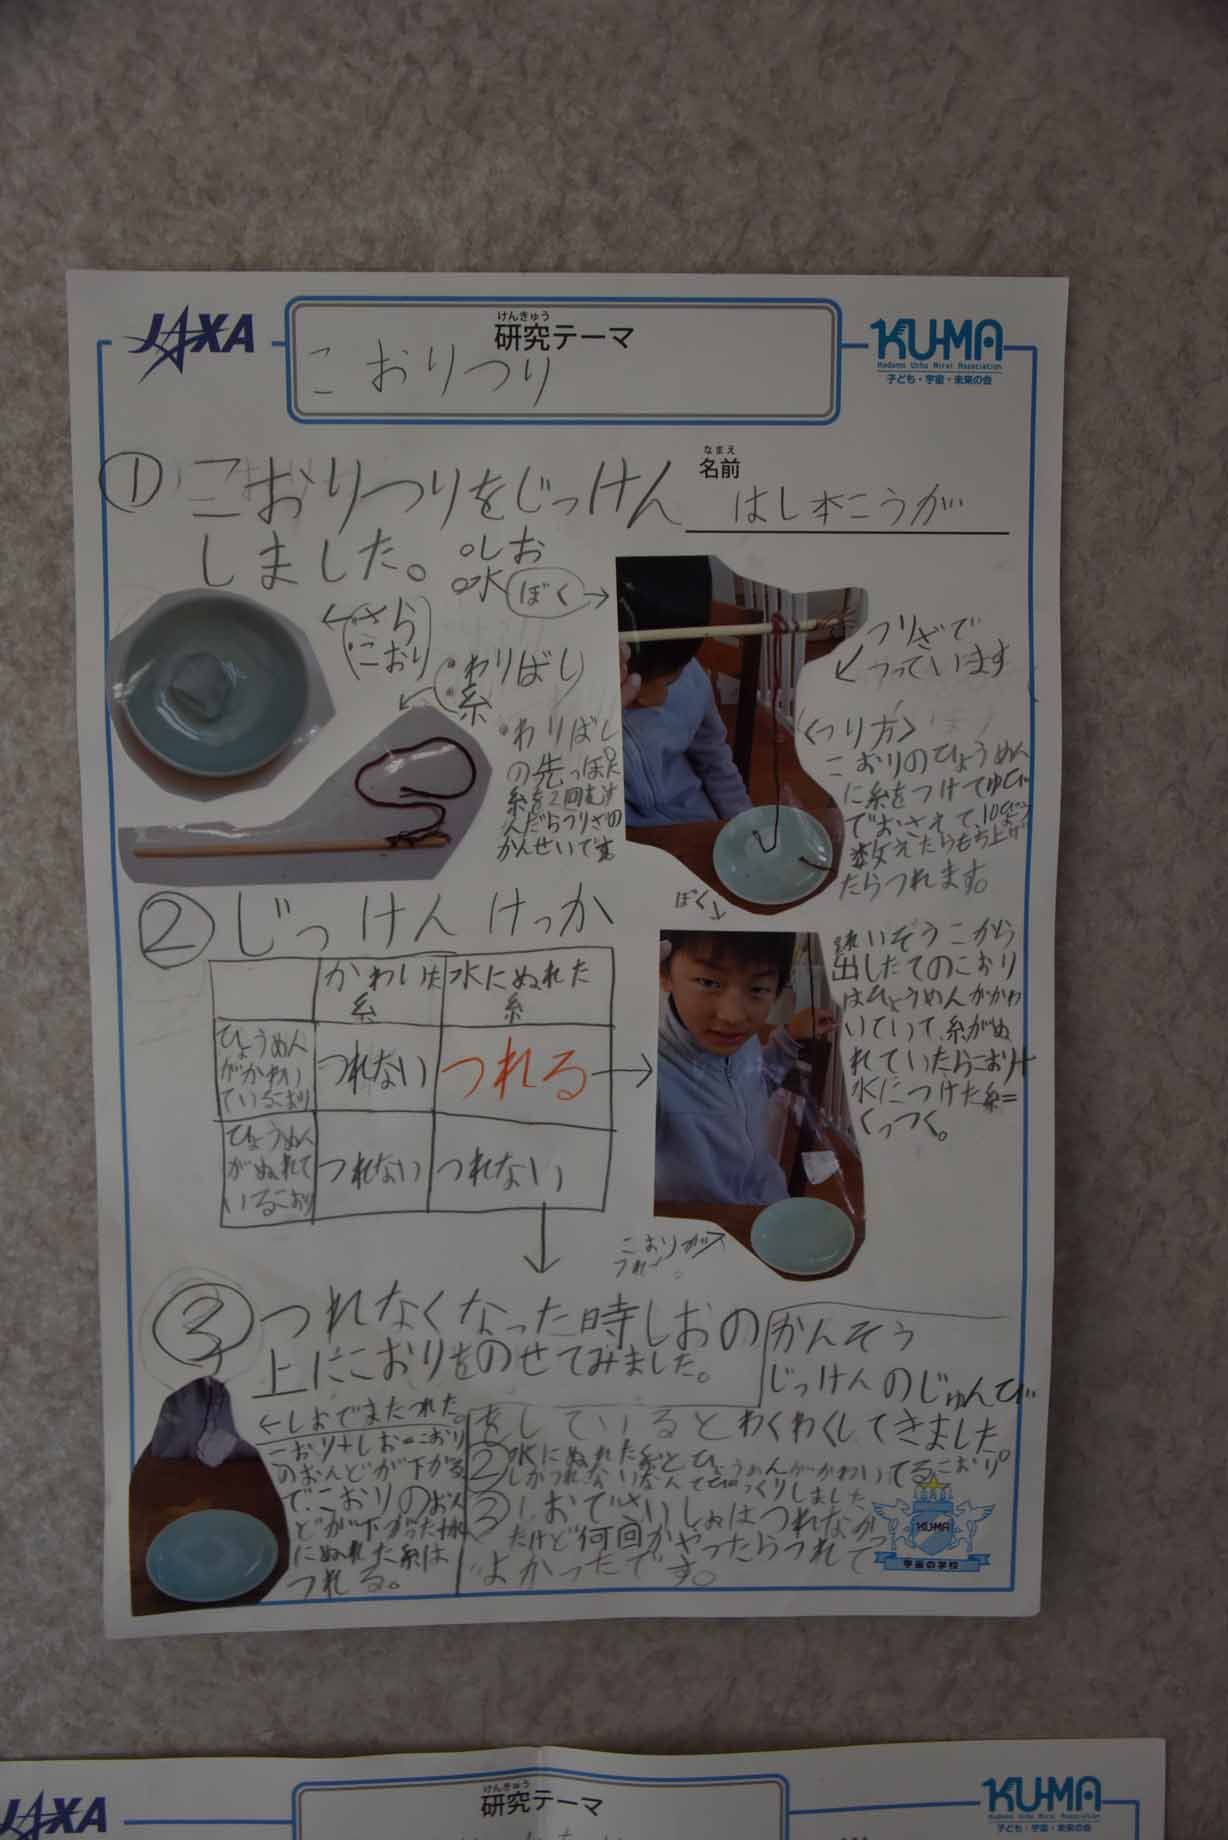 JAXA
けんきゅう
研究テーマ
こおりつり
KU-MA
Kodomo Uchu Mirai Association
子ども・宇宙・未来の会
なまえ
名前
はし本こうが
① こおりつりをじっけん
しました。
○しお
○水
ぼく
さら
こおり
わりばし
糸
・わりばし
の先っぽに
糸を2回むす
んだらつりざの
かんせいです
つりざで
つっています
〈つり方〉
こおりのひょうめん
に糸をつけてゆび
でおさえて10びょう
数えたらもち上げ
たらつれます。
② じっけんけっか
かわいた
糸
水にぬれた
糸
ひょうめん
がかわい
ているこおり
つれない
つれる
ひょうめん
がぬれて
いるこおり
つれない
つれない
ぼく
れいぞうこから
出したてのこおり
はひょうめんがかわ
いていて、糸がぬ
れていたらこおり+
水につけた糸=
くっつく。
こおりが
③ つれなくなった時しおの
上にこおりをのせてみました。
←しおでまたつれた。
こおり+しお=こおり
のおんどが下がる
でこおりのおん
どが下がった水
にぬれた糸は
つれる。
かんそう
じっけんのじゅんび
をしているとわくわくしてきました。
②水にぬれた糸とひょうめんがかわいてるこおり
しかつれないなんてびっくりしました
③しおでさいしょはつれなかっ
たけど何回かやったらつれて
よかったです。
KU-MA
宇宙の学校
JAXA
けんきゅう
研究テーマ
KU-MA
Kodomo Uchu Mirai Association
子ども・宇宙・未来の会